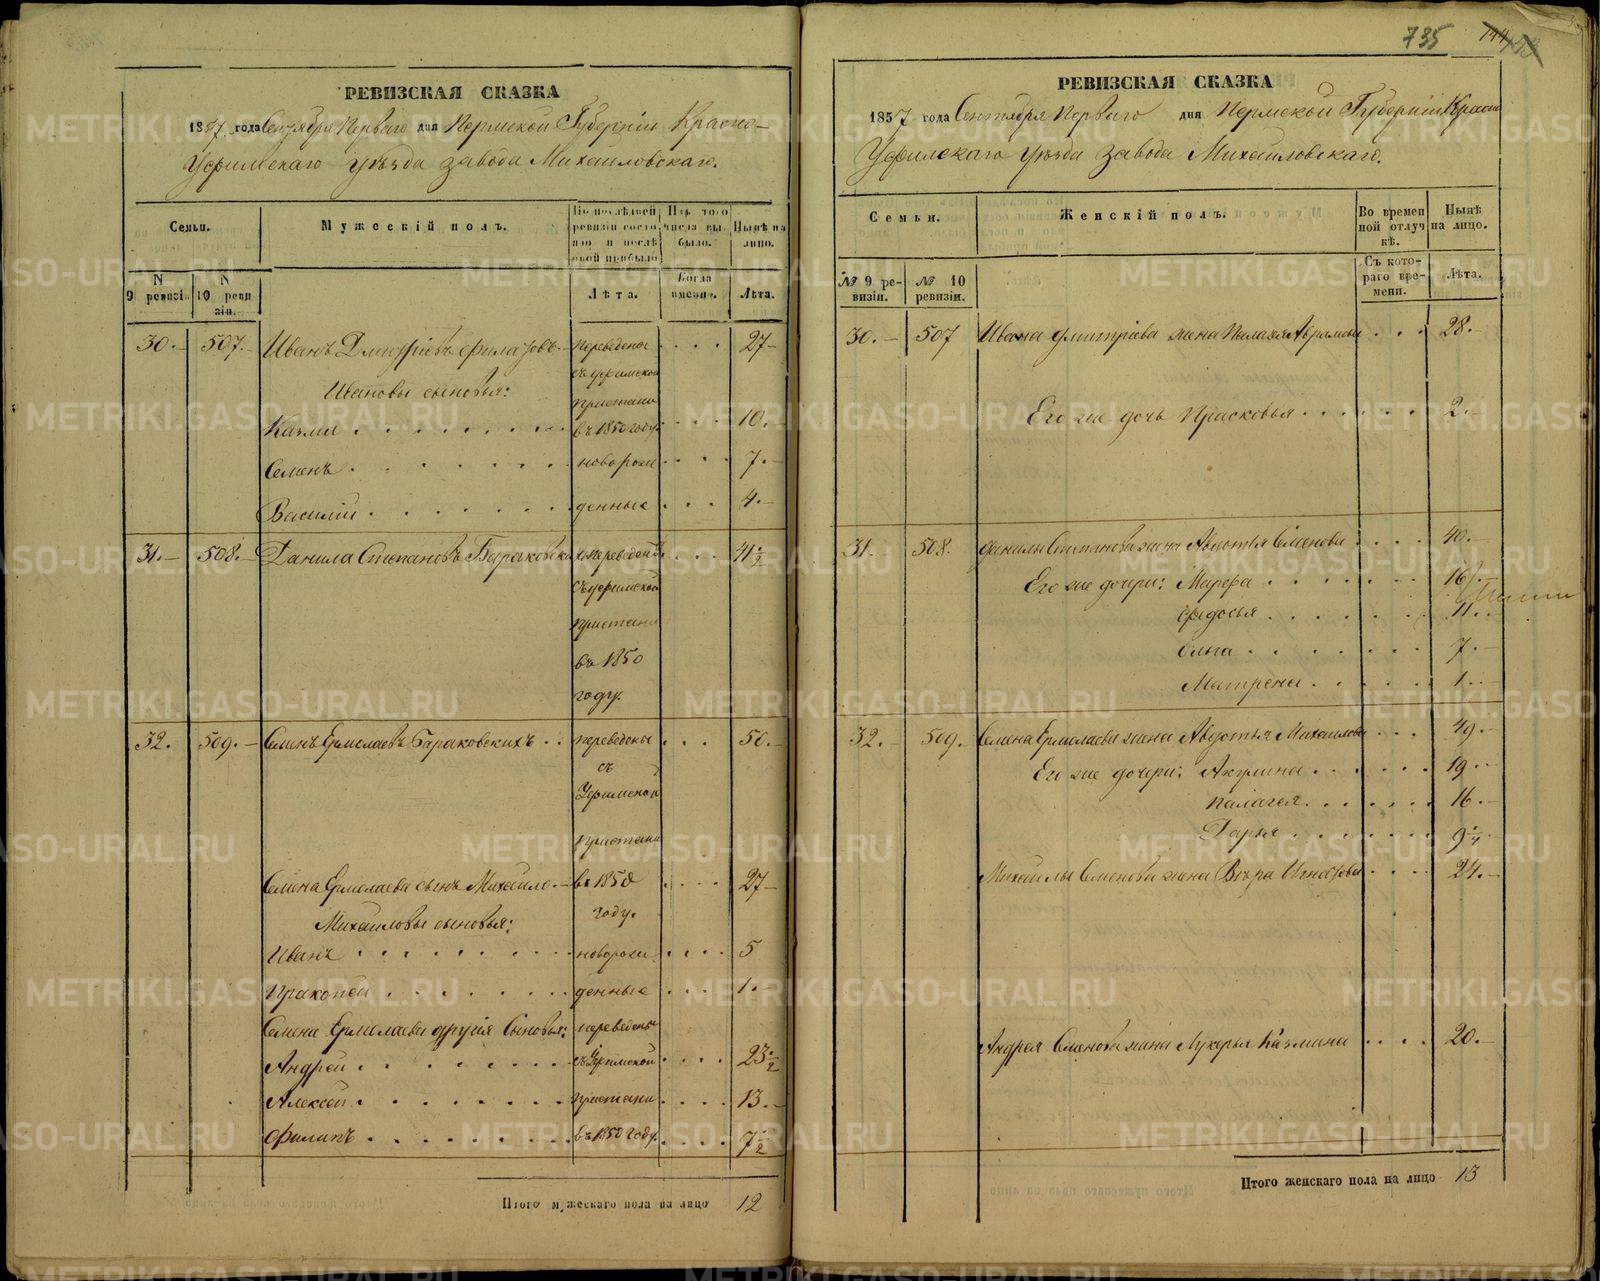 РЕВИЗСКАЯ СКАЗКА
1857 года Сентября Перваго дня Пермской Губерніи Красно-
Уфимскаго уѣзда завода Михайловскаго.
Семьи.
Мужескій полъ.
По послѣдней ревизіи состояло и послѣ оной прибыло
Изъ того числа выбыло.
Нынѣ на лицо.
N 9 ревизіи.
N 10 ревизіи.
Лѣта.
Когда именно.
Лѣта.
30. 507. Иванъ Дмитріевъ переведены 27
съ уфимской
Ивановы сыновья: пристани
Казма въ 1850 году. 10.
Семенъ новорож 7.
Василій денные 4.
31. 508. Данила Степановъ переведенъ 41½
съ уфимской
пристани
въ 1850
году.
32. 509. Семенъ Ермолаевъ Бараковскихъ переведены 50.
съ
Уфимской
пристани
Семена Ермолаева сынъ Михайло въ 1850 27
году.
Михайловы сыновья:
Иванъ новорож 5
Пракопей денные 1.
Семена Ермолаева другія Сыновья: переведены
Андрей съ Уфимской 23½
Алексей пристани 13.
Филипъ въ 1850 году. 7½
Итого мужескаго пола на лицо 12
735
РЕВИЗСКАЯ СКАЗКА
1857 года Сентября Перваго дня Пермской Губерніи Красно
Уфимскаго уѣзда завода Михайловскаго.
Семьи.
Женскій полъ.
Во временной отлучкѣ.
Нынѣ на лицо.
№ 9 ревизіи.
№ 10 ревизіи.
Съ котораго времени.
Лѣта.
30. 507 Ивана Дмитріева жена Палагея Аврамова 28.
Его же дочь Прасковья 2.
31. 508. Данилы Степанова жена Авдотья Семенова 40.
Его же дочери: Марфа 16
Федосья 11.
Олена 7.
Матрена 1.
32. 509. Семена Ермолаева жена Авдотья Михайлова 49.
Его же дочери: Акулина 19
Палагея 16.
Дарья 9¼
Михайлы Семенова жена Вѣра 24.
Андрея Семенова жена Лукерья Казмина 20.
Итого женскаго пола на лицо 13
METRIKI.GASO-URAL.RU